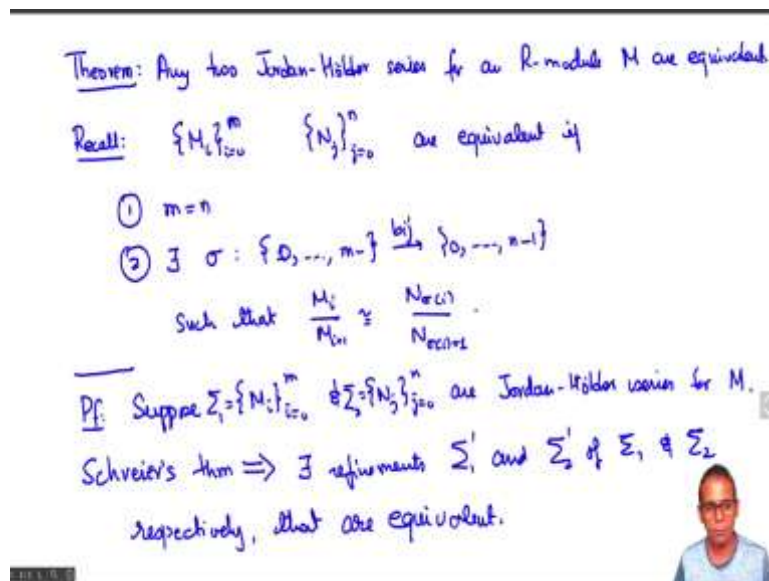 Theorem: Any two Jordan-Hölder series for an R-module M are equivalent
Recall: {M_i}_{i=0}^m {N_j}_{j=0}^n are equivalent if
① m=n
② ∃ σ: {0, ..., m-} bij→ {0, ..., n-1}
Such that M_i/M_{i+1} ≅ N_{σ(i)}/N_{σ(i)+1}.
Pf: Suppose Σ_1={M_i}_{i=0}^m & Σ_2={N_j}_{j=0}^n are Jordan-Hölder series for M.
Schreier's thm ⟹ ∃ refinements Σ_1' and Σ_2' of Σ_1 & Σ_2
respectively, that are equivalent.